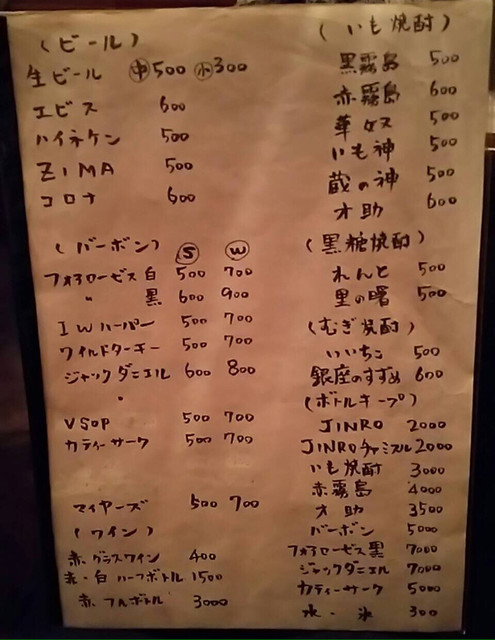 (ビール)
生ビール 中500 小300
エビス 600
ハイネケン 500
ZIMA 500
コロナ 600
(バーボン) S W
フォアローゼス 白 500 700
〃 黒 600 900
IWハーパー 500 700
ワイルドターキー 500 700
ジャックダニエル 600 800
VSOP 500 700
カティーサーク 500 700
マイヤーズ 500 700
(ワイン)
赤 グラスワイン 400
赤・白 ハーフボトル 1500
赤 フルボトル 3000
(いも焼酎)
黒霧島 500
赤霧島 600
華奴 500
いも神 500
蔵の神 500
才助 600
(黒糖焼酎)
れんと 500
里の曙 500
(むぎ焼酎)
いいちこ 500
銀座のすずめ 600
(ボトルキープ)
JINRO 2000
JINROチャミスル 2000
いも焼酎 3000
赤霧島 4000
才助 3500
バーボン 5000
フォアローゼス黒 7000
ジャックダニエル 7000
カティーサーク 5000
水・氷 300